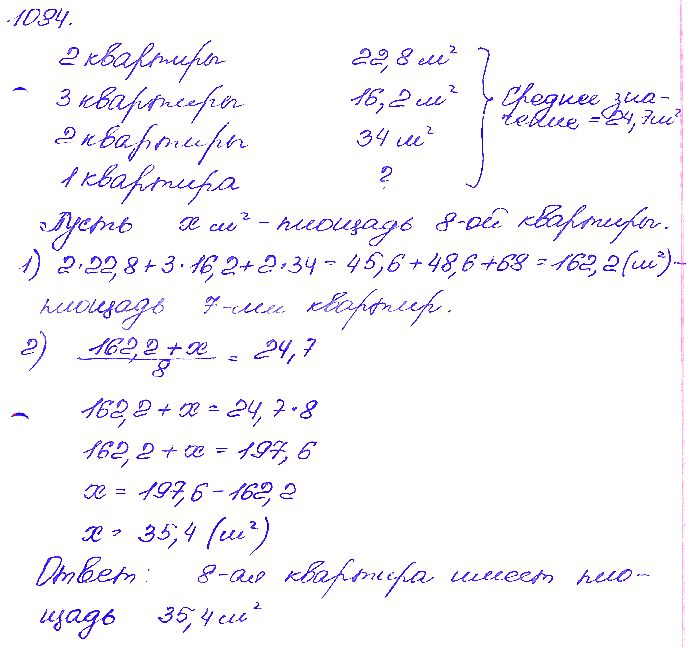 1084.
2 квартиры 22,8 м²
3 квартиры 16,2 м² Среднее зна-
2 квартиры 34 м² чение = 24,7м²
1 квартира ?
Пусть x м² - площадь 8-ой квартиры.
1) 2·22,8+3·16,2+2·34=45,6+48,6+68=162,2(м²)-
площадь 7-ми квартир.
2) (162,2+x)/8 = 24,7
162,2+x=24,7·8
162,2+x=197,6
x=197,6-162,2
x= 35,4 (м²)
Ответ: 8-ая квартира имеет пло-
щадь 35,4м²